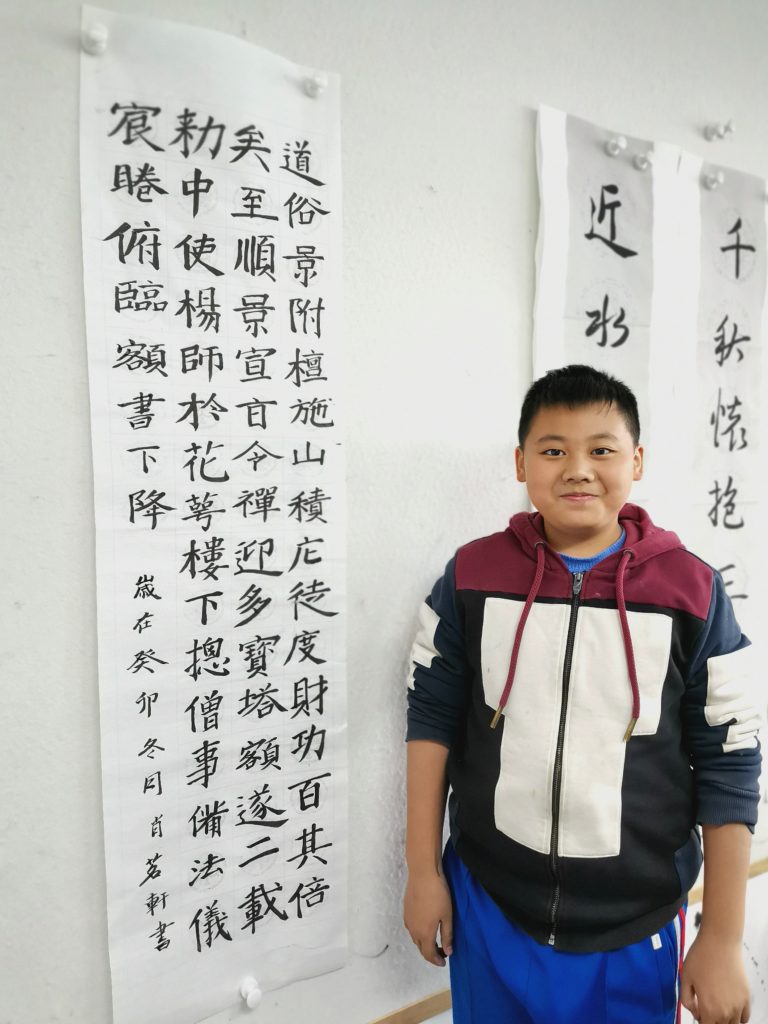 千秋懷抱三
近水
道俗景附檀施山積庀徒度財功百其倍
矣至順景宣旨令禪迎多寶塔額遂二載
勑中使楊師於花萼樓下摠僧事備法儀
宸睠俯臨額書下降
歲在癸卯冬月肖茗軒書